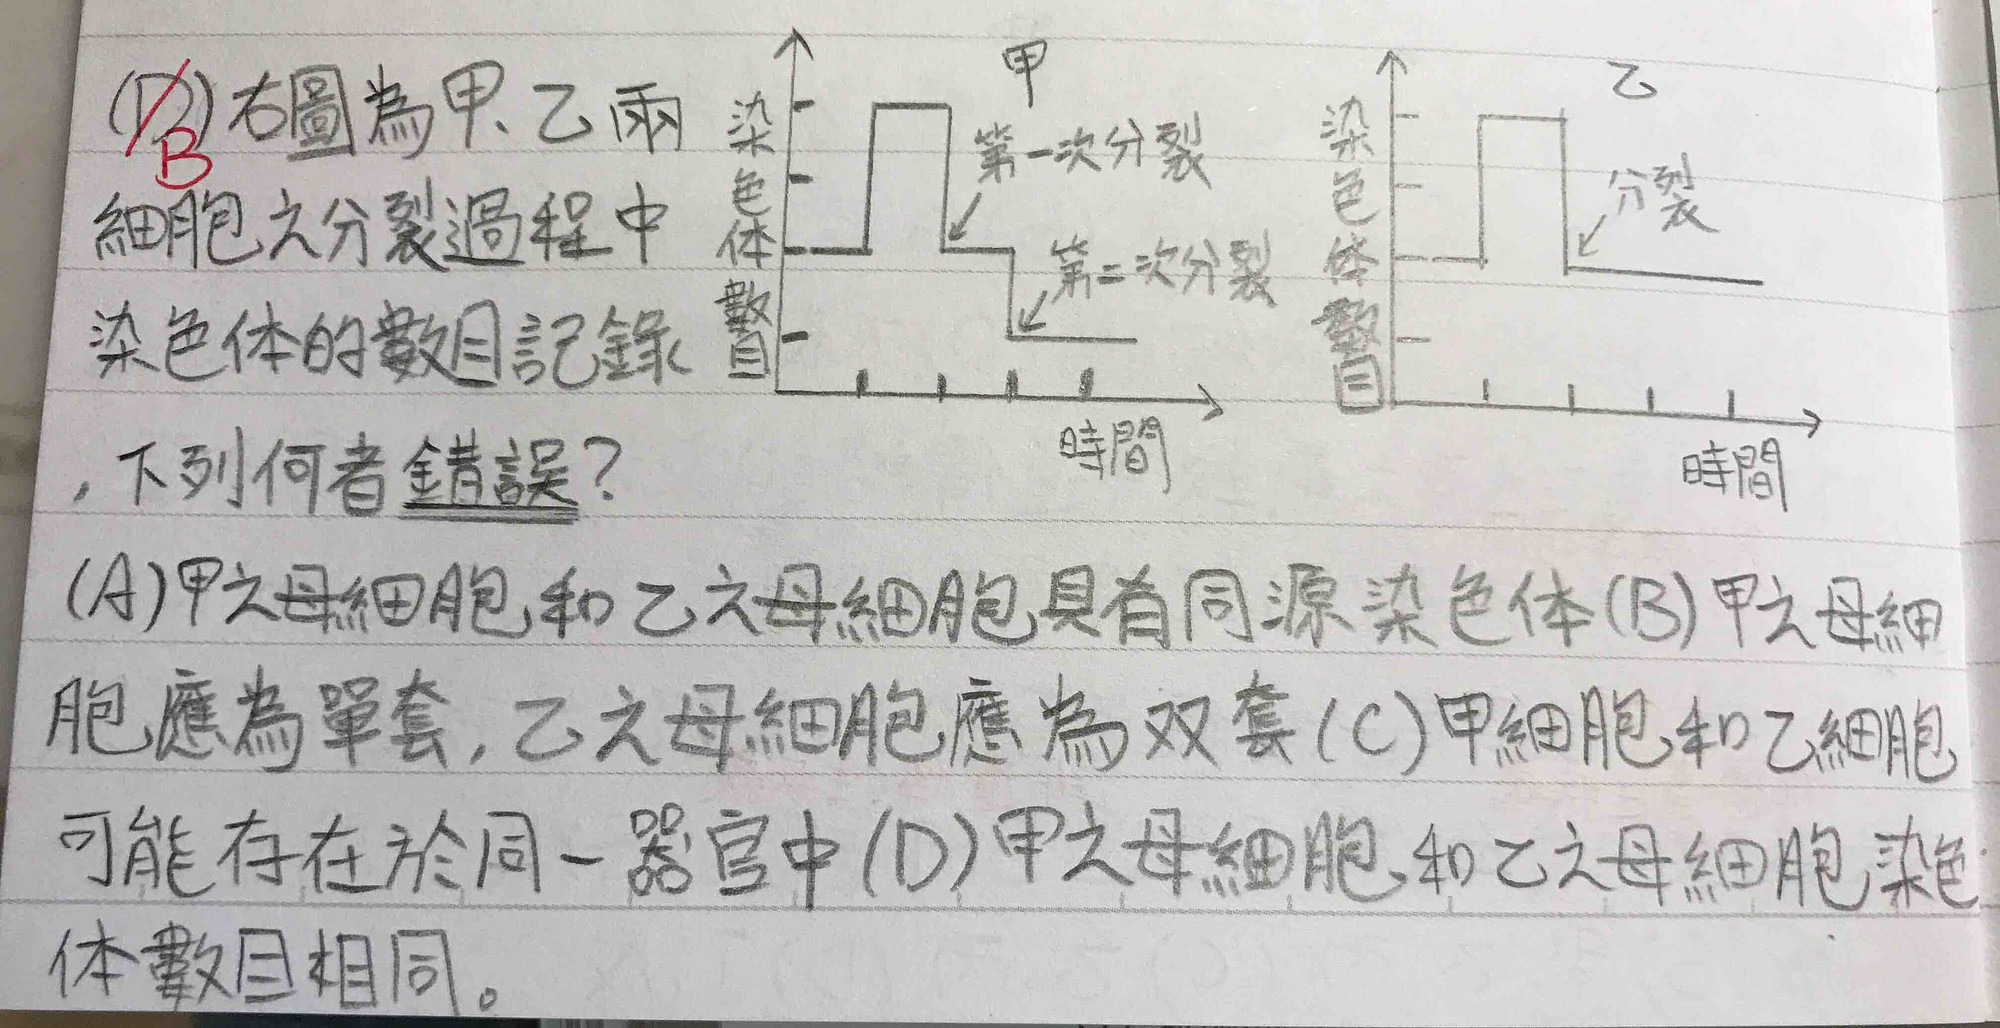 (D)右圖為甲、乙兩
B
細胞之分裂過程中
染色体的數目記錄
,下列何者錯誤?
甲
染色体數目
第一次分裂
第二次分裂
時間
乙
染色体數目
分裂
時間
(A)甲之母細胞和乙之母細胞具有同源染色体(B)甲之母細
胞應為單套,乙之母細胞應為双套(C)甲細胞和乙細胞
可能存在於同一器官中(D)甲之母細胞和乙之母細胞染色
体數目相同。